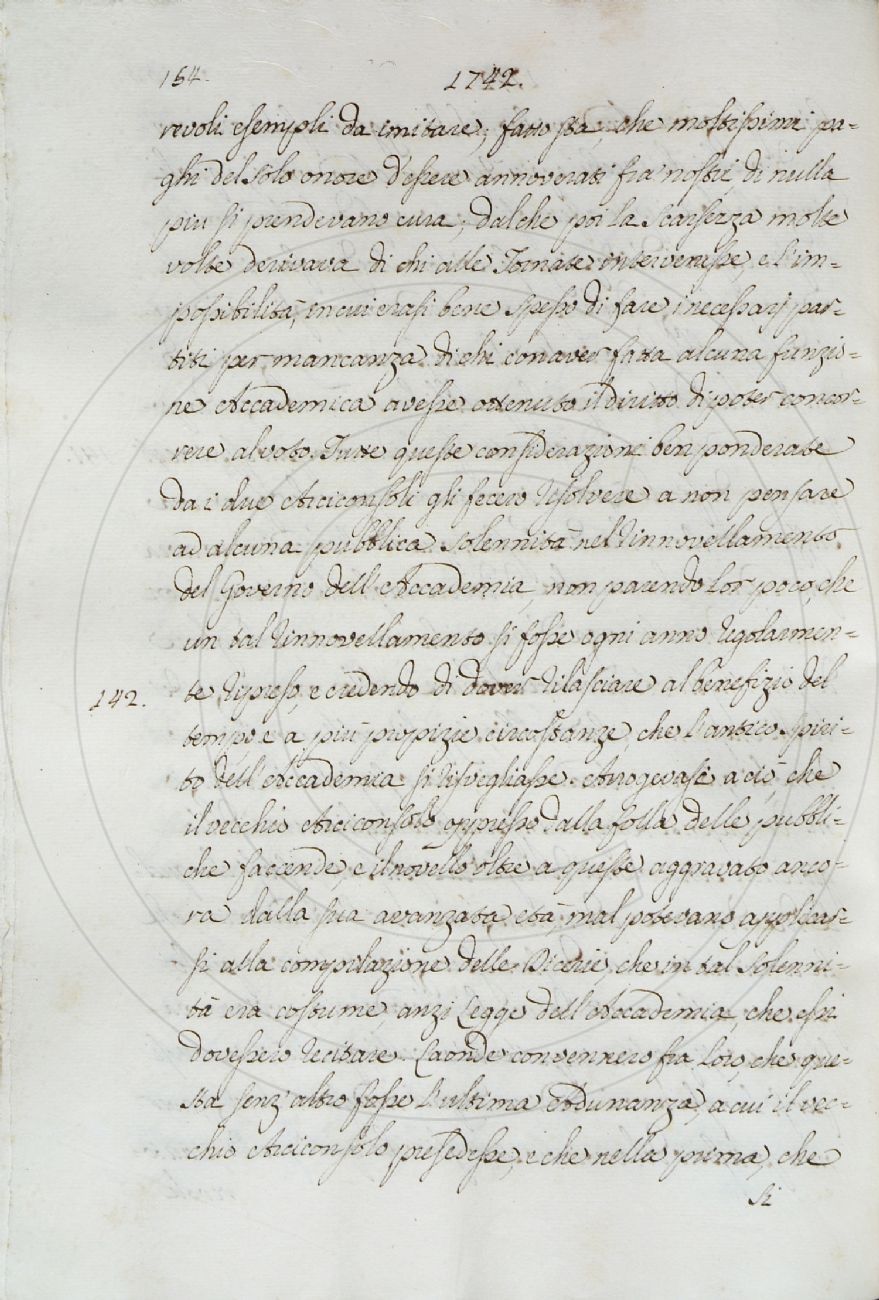 164. 1742.
revoli esempli da imitare; fatto sta, che moltissimi pa-
ghi del solo onore d'essere annoverati fra' nostri, di nulla
più si prendevano cura; dal che poi la scarsezza molte
volte derivava di chi alle Tornate intervenisse, e l'im-
possibilità, in cui erasi bene spesso di fare i necessarj par-
titi per mancanza di chi con aver fatta alcuna funzio-
ne Accademica avesse ottenuto il diritto di poter concor-
rere al voto. Tutte queste considerazioni ben ponderate
da i due Arciconsoli gli fecero risolvere a non pensare
ad alcuna pubblica solennità nel rinnovellamento
del Governo dell'Accademia, non parendo lor poco, che
un tal rinnovellamento si fosse ogni anno regolarmen-
142. te ripreso, e credendo di dover rilasciare al benefizio del
tempo e a più propizie circostanze, che l'antico spiri-
to dell'Accademia si risvegliasse. Arrogevasi a ciò, che
il vecchio Arciconsolo oppresso dalla folla delle pubbli-
che faccende, e il novello oltre a queste aggravato anco-
ra dalla sua avanzata età, mal potevano applicar-
si alla compilazione delle Dicerie, che in tal solenni-
tà era costume, anzi Legge dell'Accademia, che essi
dovessero recitare. Laonde convennero fra loro, che que-
sta senz'altro fosse l'ultima Adunanza, a cui il vec-
chio Arciconsolo presedesse, e che nella prima, che
si